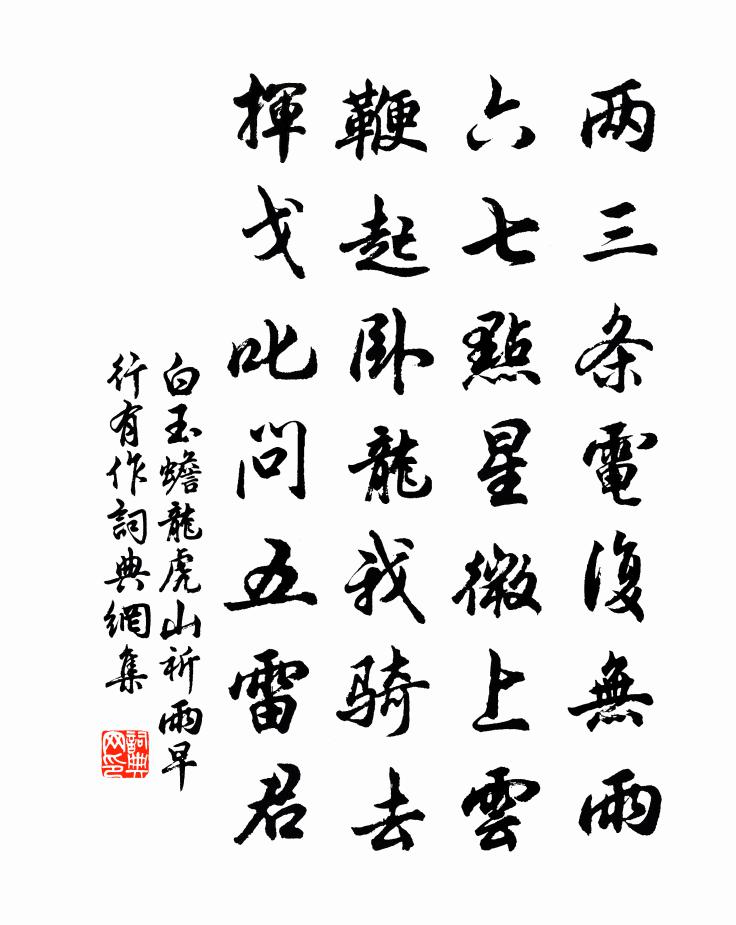 两三条電復無雨
六七點星微上雲
鞭起卧龍我騎去
揮戈叱問五雷君
白玉蟾龍虎山祈雨早
行有作詞典網集
詞典网印